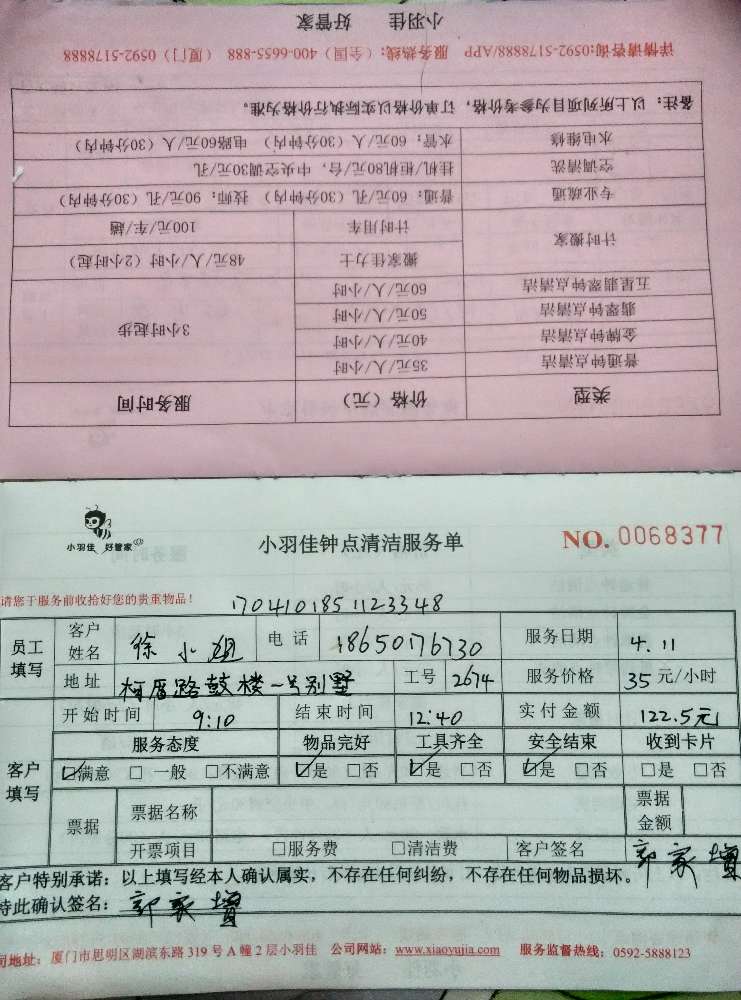 类型 价格（元） 服务时间
普通钟点清洁 35元/人/小时 3小时起步
金牌钟点清洁 40元/人/小时
翡翠钟点清洁 50元/人/小时
五星翡翠钟点清洁 60元/人/小时
计时搬家 搬家佳力士 48元/人/小时（2小时起）
计时用车 100元/车/趟
专业疏通 普通：60元/孔（30分钟内） 技师：90元/孔（30分钟内）
空调清洗 挂机/柜机80元/台，中央空调30元/孔
水电维修 水管：60元/人（30分钟内） 电路60元/人（30分钟内）
备注：以上所列项目为参考价格，订单价格以实际执行价格为准。
详情请咨询:0592-5178888/APP 服务热线：（全国）400-6655-888 （厦门）0592-5178888
小羽佳 好管家
小羽佳 好管家
小羽佳钟点清洁服务单
NO. 0068377
请您于服务前收拾好您的贵重物品！
1704101851123348
员工填写 客户姓名 徐小姐 电话 18650176730 服务日期 4.11
地址 柯厝路鼓楼一号别墅 工号 2674 服务价格 35元/小时
客户填写 开始时间 9:10 结束时间 12:40 实付金额 122.5元
服务态度 物品完好 工具齐全 安全结束 收到卡片
☑满意 □一般 □不满意 ☑是 □否 ☑是 □否 ☑是 □否 □是 □否
票据 票据名称 票据金额
开票项目 □服务费 □清洁费 客户签名
客户特别承诺：以上填写经本人确认属实，不存在任何纠纷，不存在任何物品损坏。
特此确认签名：
司地址：厦门市思明区湖滨东路319号A幢2层小羽佳 公司网站：www.xiaoyujia.com 服务监督热线：0592-5888123